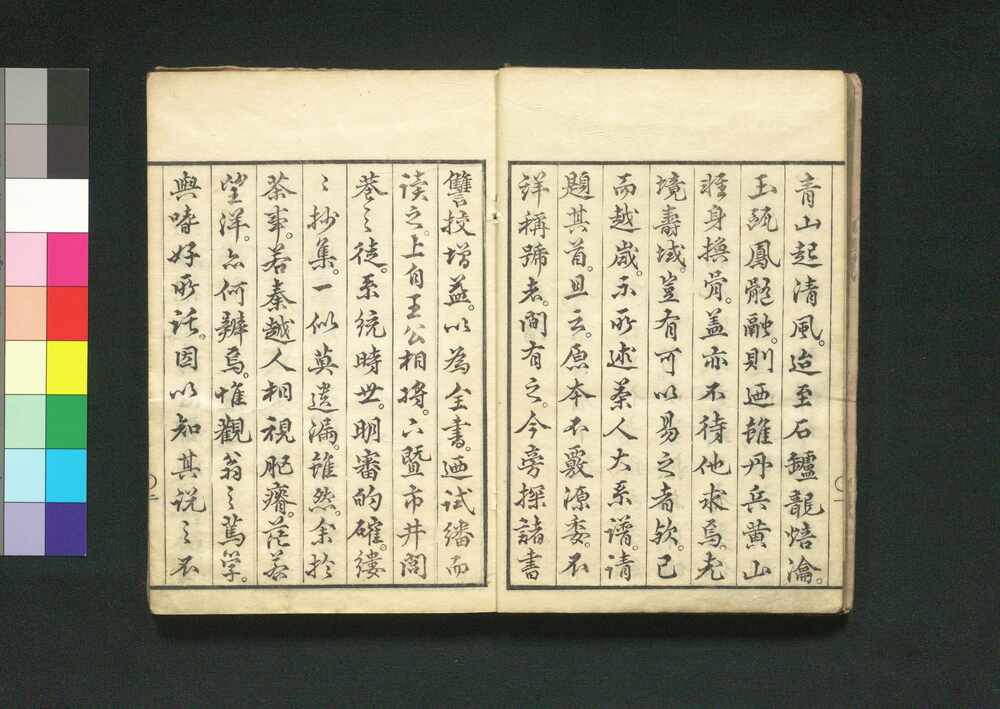 青山起清風。迨至石鑪龍焙瀹。
玉甌鳳髓融。則迺雖丹兵黄山
軽身換骨。盖亦不待他求焉。
境壽域。豈有可以易之者欤。已
而越歳。示所述茶人大系譜。請
題其首。且云。原本不覈源委。不
詳稱號者。間有之。今旁探諸書
讐挍増益。以為全書。迺試繙而
读之。上自王公相将。下暨市井閭
巷之徒。系統時世。明審的確。縷
〻抄集。一似莫遺漏。雖然。余於
茶事。若秦越人相視肥瘠。茫若
望洋。亦何辨焉。惟觀翁之篤學。
與嗜好所託。因以知其说之不